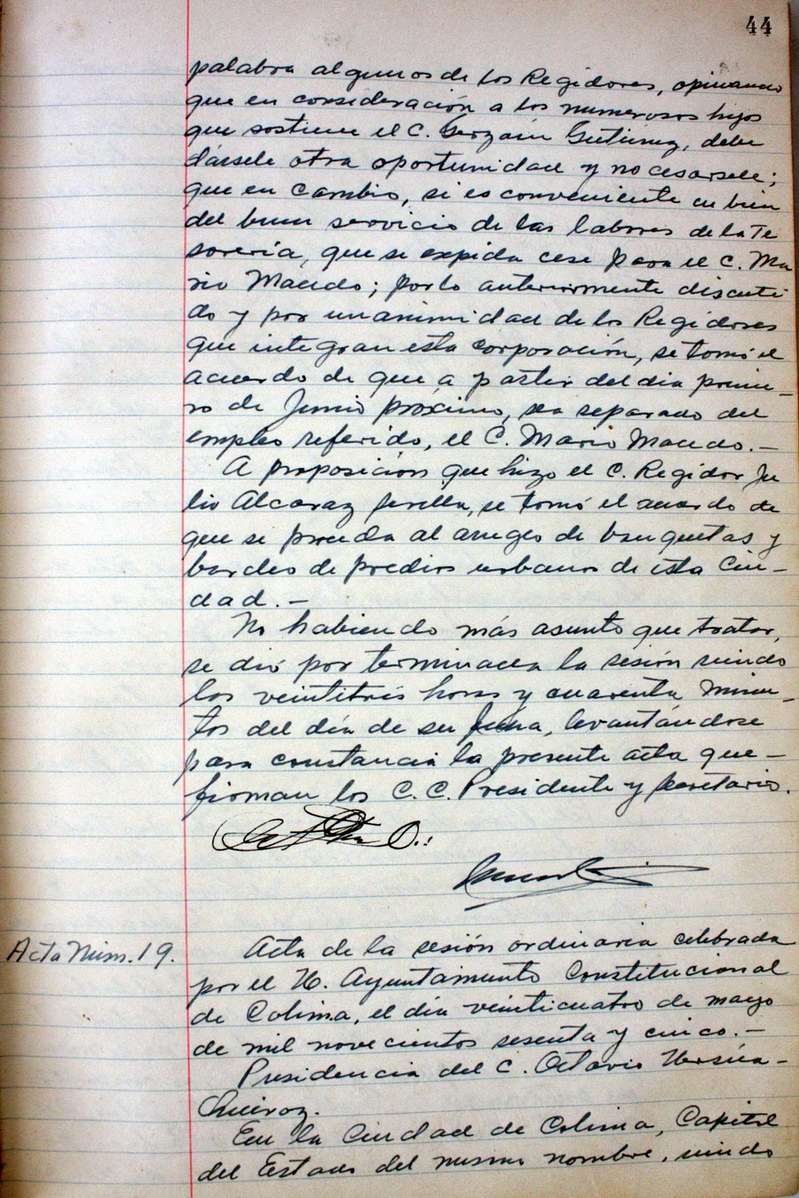 44
palabra algunos de los Regidores, opinando
que en consideración a los numerosos hijos
que sostiene el C. Gerzain Gutiérrez, debe
dársele otra oportunidad y no cesarsele;
que en cambio, si es conveniente en bien
del buen servicio de las labores de la Te
sorería, que se expida cese para el C. Ma
rio Macedo; por lo anteriormente discuti
do y por unanimidad de los Regidores
que integran esta corporación, se tomó el
acuerdo de que a partir del dia prime-
ro de Junio próximo, sea separado del
empleo referido, el C. Mario Macedo.-
A proposición que hizo el C. Regidor Ju
lio Alcaraz, se tomó el acuerdo de
que se proceda al arreglo de banquetas y
bardeo de predios urbanos de esta Ciu-
dad.-
No habiendo más asunto que tratar,
se dió por terminada la sesión siendo
las veintitrés horas y cuarenta minu-
tos del día de su fecha, levantándose
para constancia la presente acta que-
firman los C. C. Presidente y Secretario.
Acta Núm. 19.
Acta de la sesión ordinaria celebrada
por el H. Ayuntamiento Constitucional
de Colima, el día veinticuatro de mayo
de mil novecientos sesenta y cinco.-
Presidencia del C. Octavio Ursúa-
Quiroz.
En la Ciudad de Colima, Capital
del Estado del mismo nombre, siendo